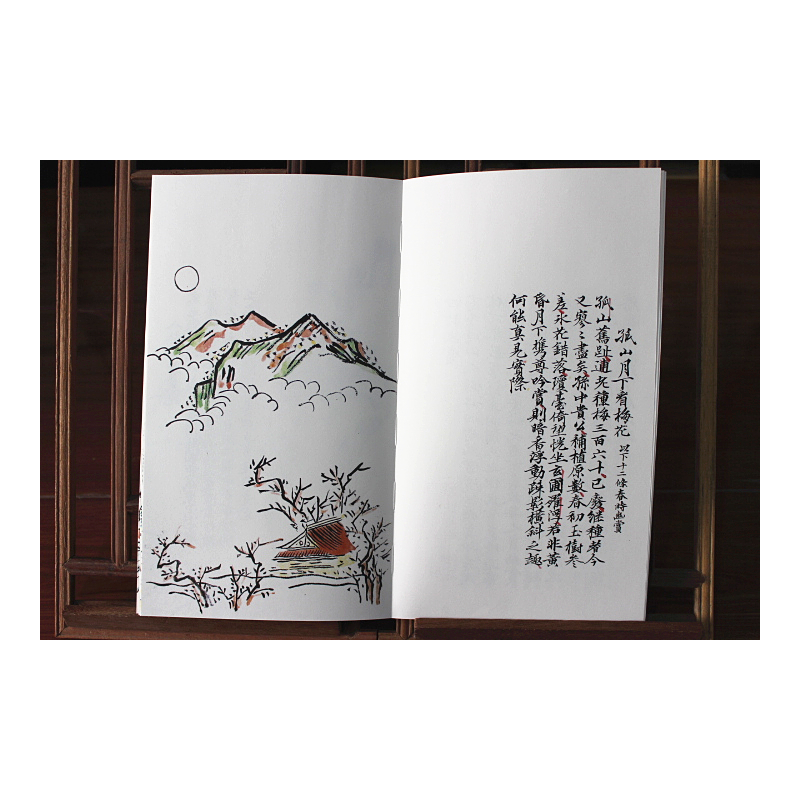 孤山月下看梅花 以下十二條春時幽賞
孤山舊趾逋老種梅三百六十已廢繼種者今
又寥々盡矣孫中貴公補植原數春初玉樹參
差冰花錯落瓊臺倚望恍坐玄圃羅浮若非黃
昏月下携尊吟賞則暗香浮動疎影橫斜之趣
何能真見實際